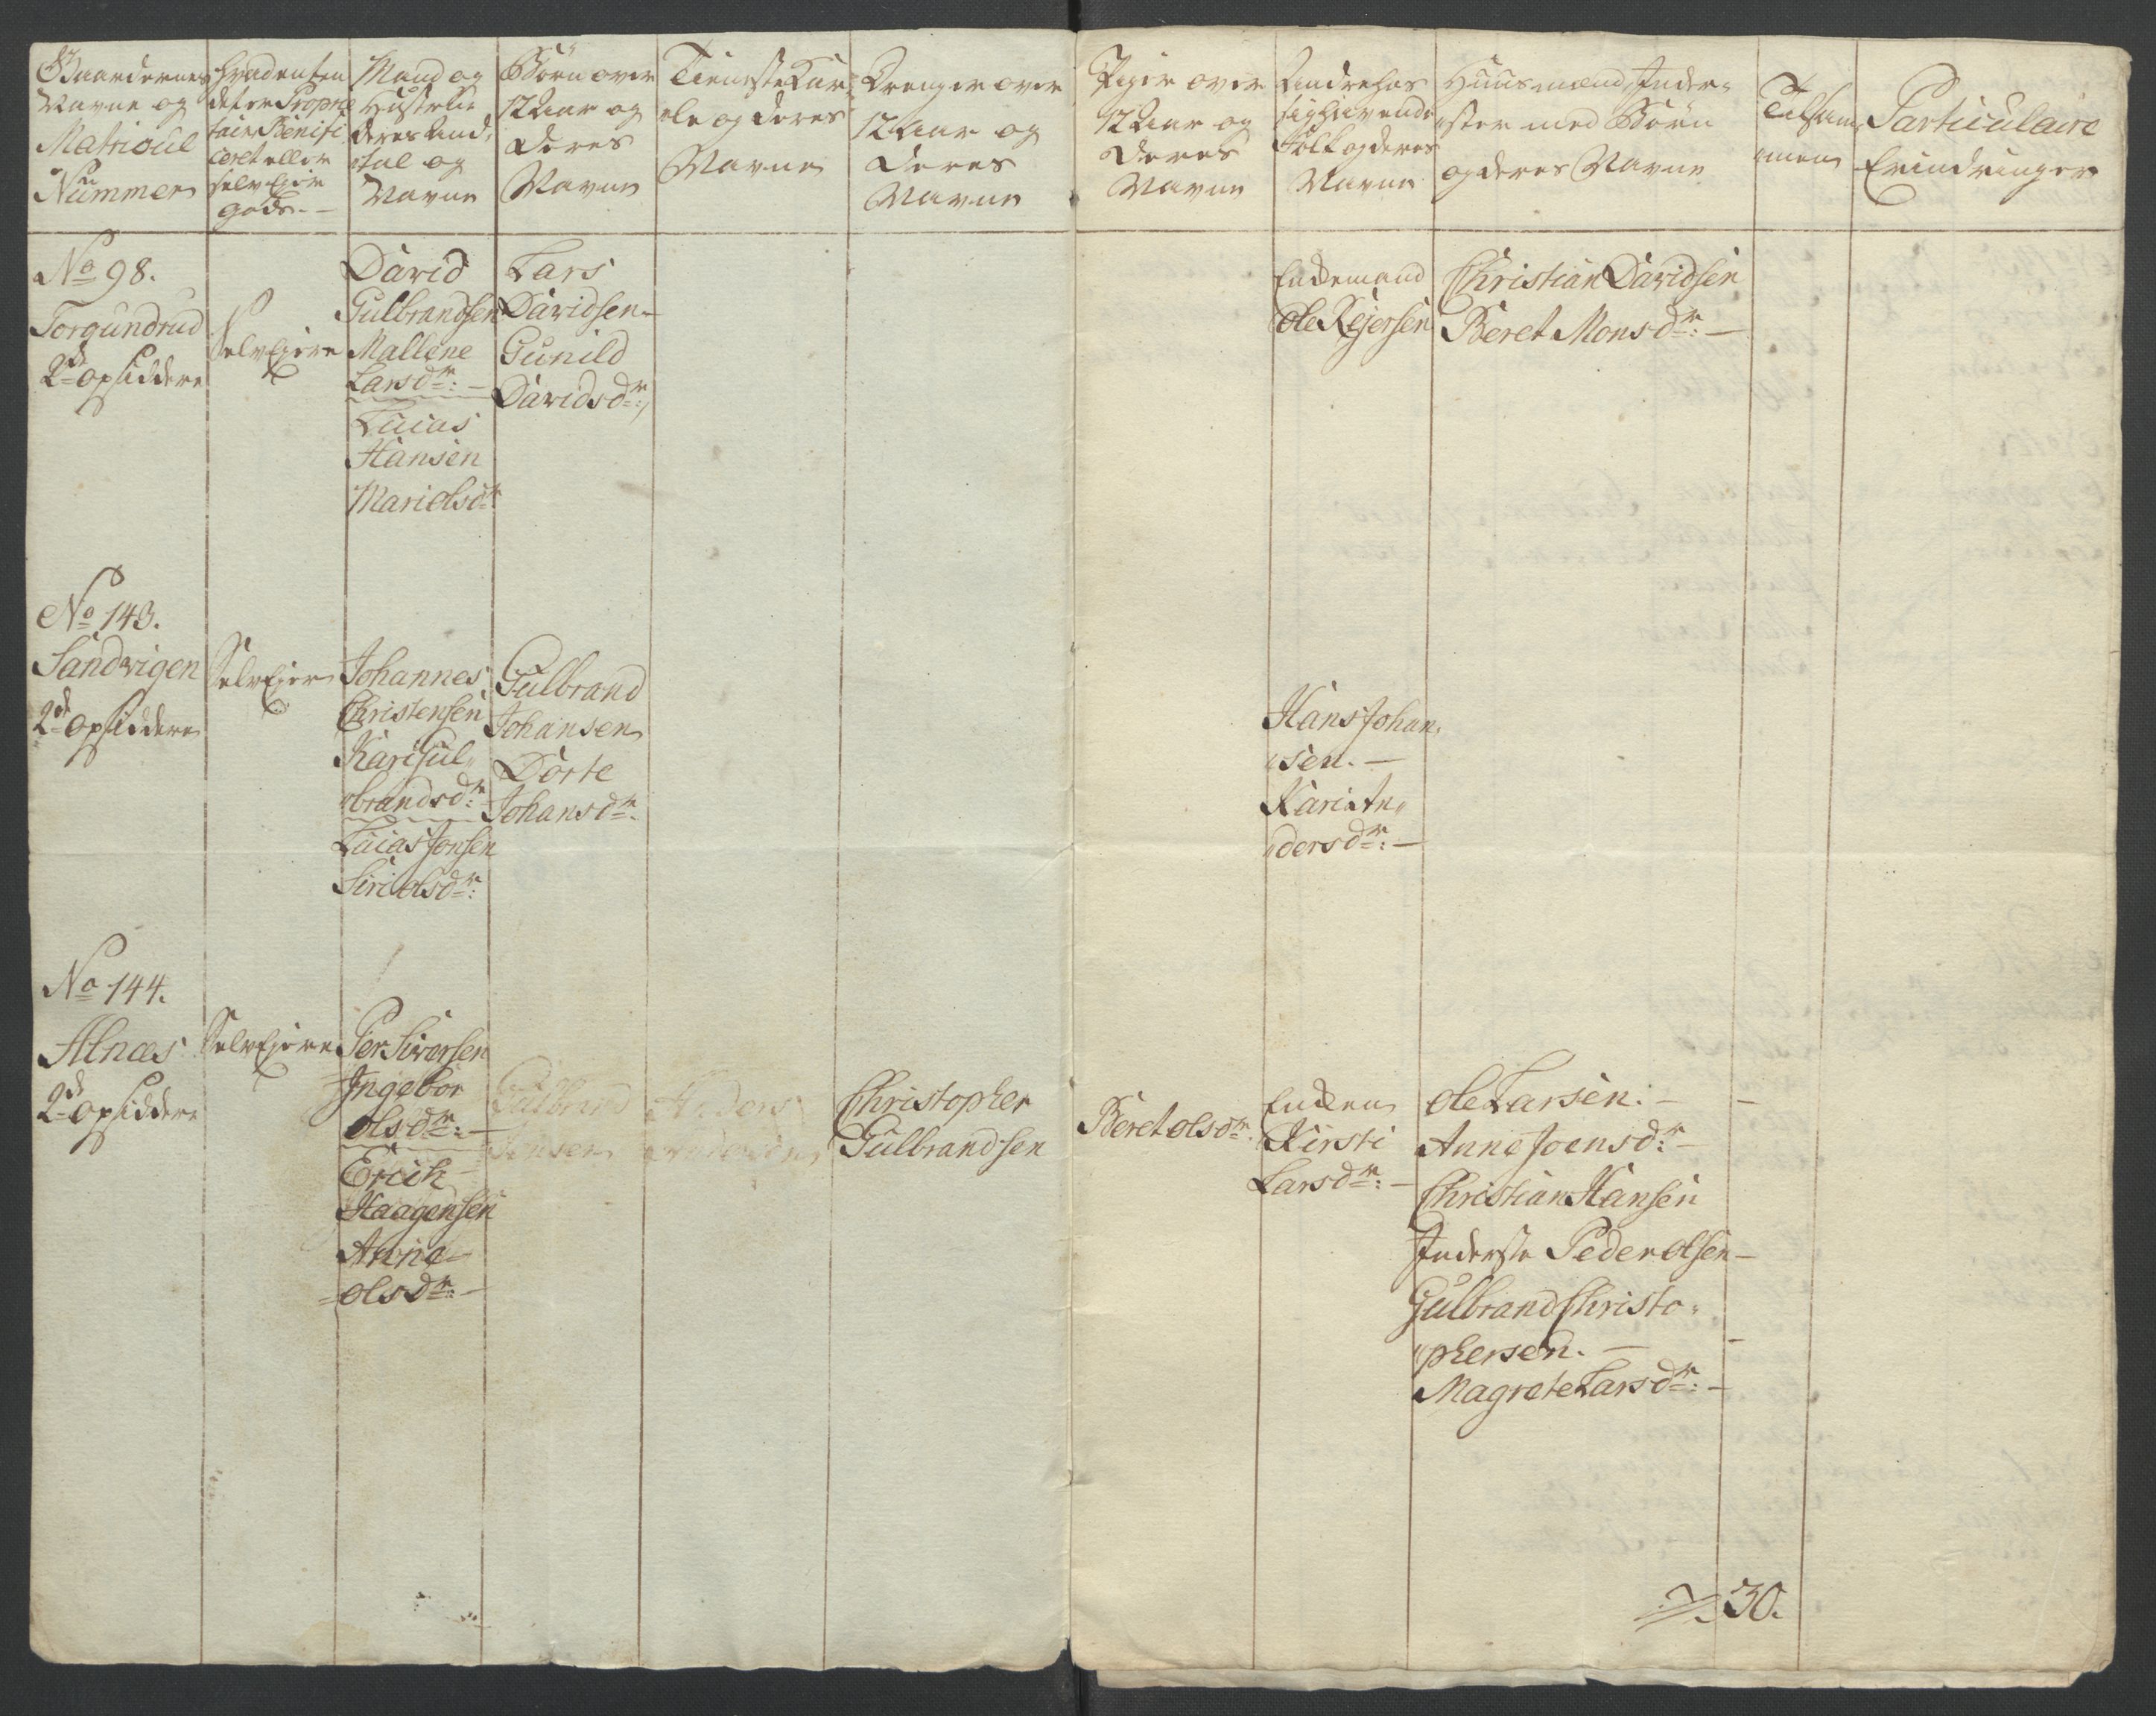 Gaardernes
Navne og
Matricul
Nummer
Hvad enten
det er Proprie
tair Benifi
ceret eller
selv Ejer
Gods.—
Mand og
Hustrue
deres And,
tal og
Navne
Børn over
12 Aar og
deres
Navne
Tieneste Kar
le og deres
Navne
Drenger over
12 Aar og
deres
Navne
Piger over
12 Aar og
deres
Navne
Andre hos
sig havende
Folk og deres
Navne
Huusmænd, Inder-
ster med Børn
og deres Navne
Tilsam
men
Particulaire
Erindringer
No 98.
Torgundrud
2de Opsiddere
Selv Ejere
David
Gulbrandsen
Mallene
Larsdr: —
Lucas
Hansen
Mari Olsdr
Lars
Davidsen—
Gunild
Davidsdr:
Enkemand
Ole Rejersen
Christian Davidsen
Beret Monsdr: —
No 143.
Sandvigen
2de Opsiddere
Selv Ejer
Johannes
Christensen
Kari Gul,,
,,brandsdr:
Lucas Jonsen
Siri Olsdr:
Gulbrand
Johansen
Dorte
Johansdr.
Hans Johan,,
,,sen. —
Kari An,,
,,dersdr: —
No 144.
Alnæs
2de Opsiddere
Selv Ejere
Per Siversen
Ingebor
Olsdr: —
Erich
Haagensen
Anne—
Olsdr: —
Gulbrand
Jensen
Anders
Andersen
Christopher
Gulbrandsen
Beret Olsdr.
Enken
Kirsti
Larsdr: —
Ole Larsen: — —
Anne Joensdr: —
Christian Hansen
Inderste Peder Olsen—
Gulbrand Christo,,
,,phersen. — —
Magrete Larsdr: —
30.